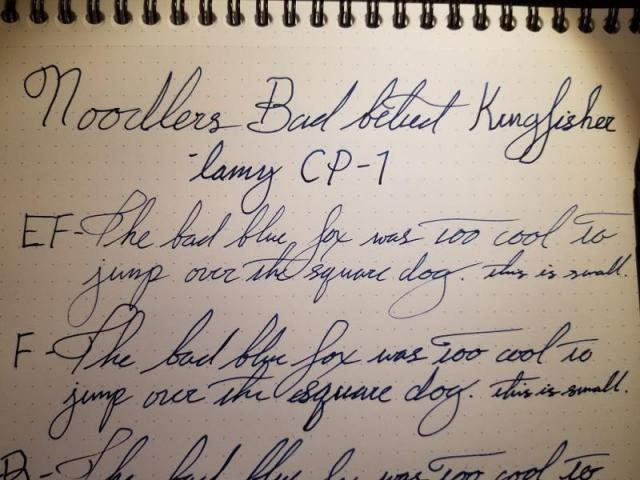 Noodlers Bad belted Kingfisher
-lamy CP-1
EF-The bad blue fox was too cool to
jump over the square dog. this is small.
F-The bad blue fox was too cool to
jump over the square dog. this is small.
B-The bad blue fox was too cool to